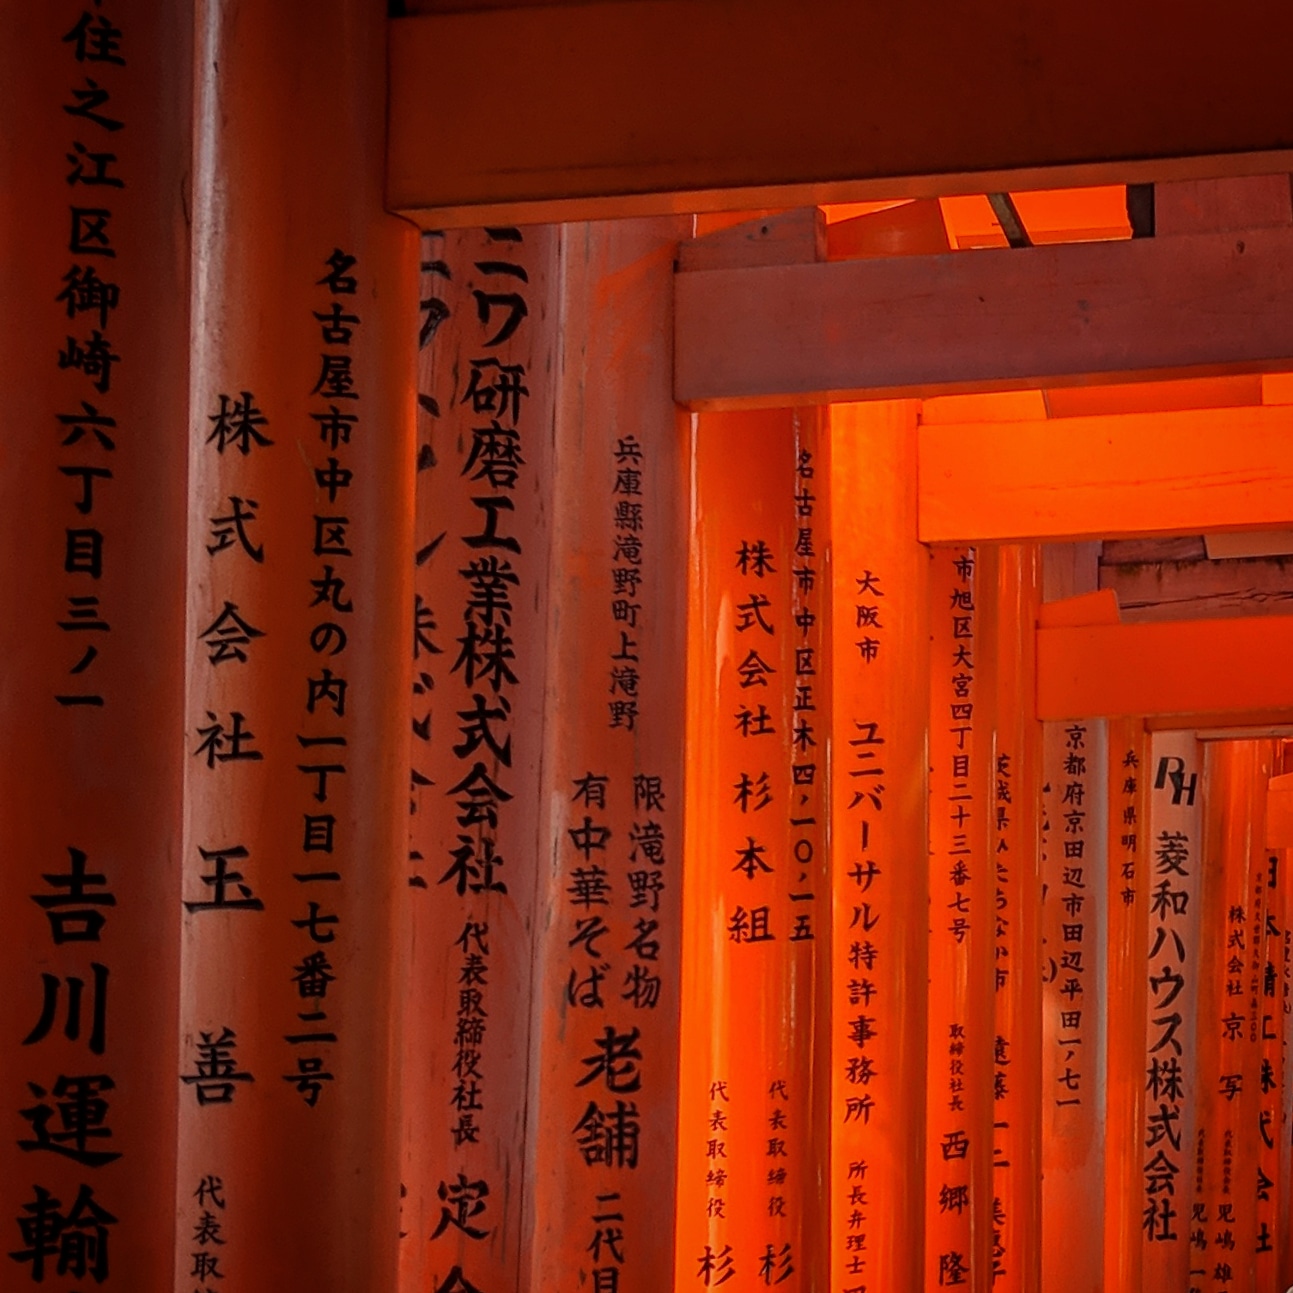 住之江区御崎六丁目三ノ一
吉川運輸
名古屋市中区丸の内一丁目一七番二号
株式会社 玉善
代表取
ニワ研磨工業株式会社
代表取締役社長 定
兵庫縣滝野町上滝野
限滝野名物
有中華そば
老舗 二代目
名古屋市中区正木四ノ一〇ノ一五
株式会社 杉本組
代表取締役 杉
代表取締役 杉
大阪市 ユニバーサル特許事務所
所長弁理士
市旭区大宮四丁目二十三番七号
取締役社長 西郷隆
遠藤
京都府京田辺市田辺平田一ノ七一
兵庫県明石市
RH 菱和ハウス株式会社
株式会社 京写
児嶋雄
児嶋一
株式会社